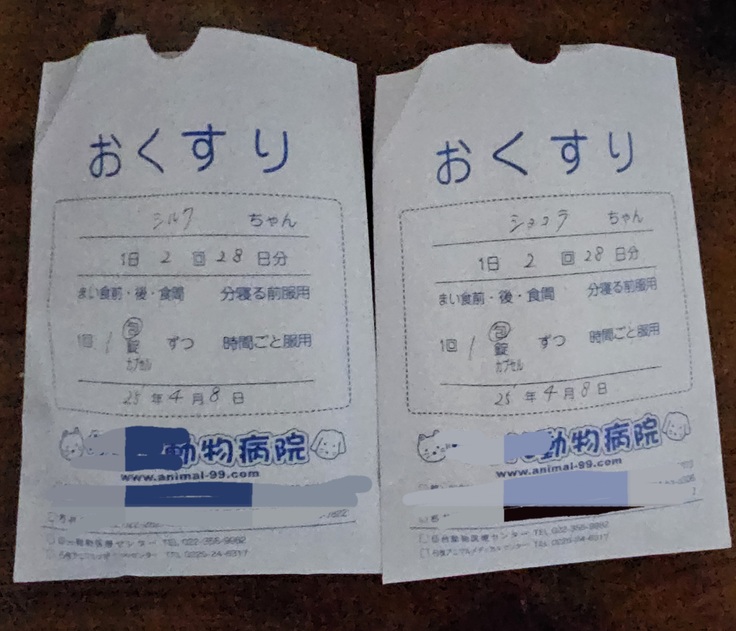 おくすり
シルク ちゃん
1日 2 回 28 日分
まい食前・後・食間 分寝る前服用
1回 1 包 ずつ 時間ごと服用
錠
カプセル
25年4月8日
動物病院
www.animal-99.com
TEL 022-358-9962
TEL 0225-24-6317
おくすり
ショコラ ちゃん
1日 2 回 28 日分
まい食前・後・食間 分寝る前服用
1回 1 包 ずつ 時間ごと服用
錠
カプセル
25年4月8日
動物病院
www.animal-99.com
TEL 022-358-9962
TEL 0225-24-6317